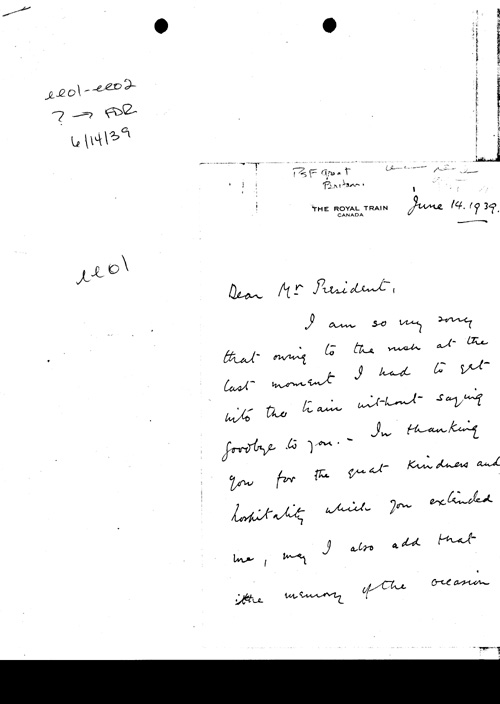 ee01-ee02
? → FDR
6/14/39
PSF Great Britain
THE ROYAL TRAIN
CANADA
June 14. 1939.
ee01
Dear Mr President,
I am so very sorry
that owing to the rush at the
last moment I had to get
into the train without saying
goodbye to you. - In thanking
you for the great kindness and
hospitality which you extended
me, may I also add that
the memory of the occasion